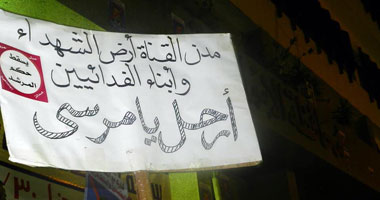 مدن القناة أرض الشهداء
وأبناء الفدائيين
أرحل يا مرسى
يسقط
حكم
المرشد